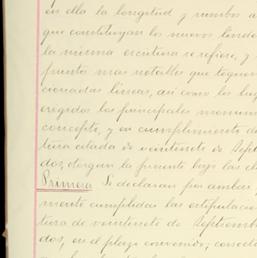 en ella la longitud y rumbos a
que constituyan los nuevos linde
la misma escritura se refiere, y
puntos mas notables que toquen
cionadas lineas, así como los lug
eregidos los principales monum
concepto, y en cumplimiento de
tura citada de veintisete de Sept
dos, otorgan la presente bajo las cl
Primera Se declaran por ambas
mente cumplidas las estipulacio
tura de veintisete de Septiemb
dos, en el plazo convenido, consecu